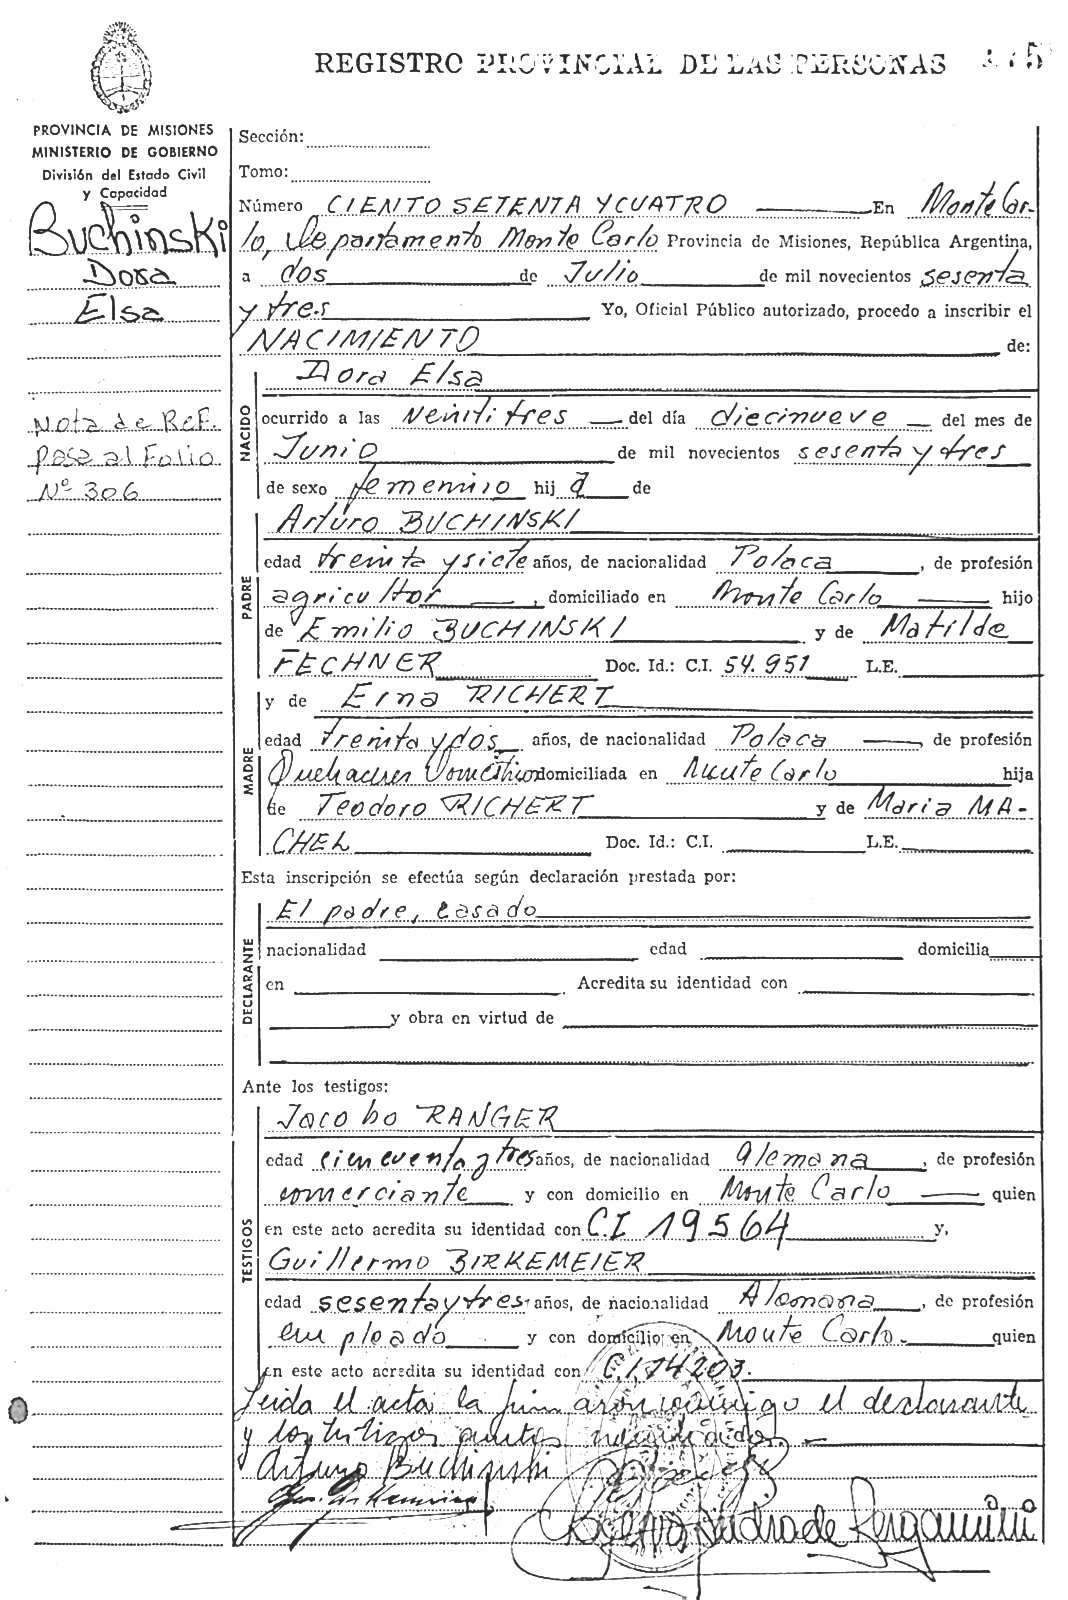 REGISTRO PROVINCIAL DE LAS PERSONAS
PROVINCIA DE MISIONES
MINISTERIO DE GOBIERNO
División del Estado Civil
y Capacidad
Buchinski
Dora
Elsa
Nota de Ref.
pasa al Folio
Nº 306
Sección:
Tomo:
Número CIENTO SETENTA Y CUATRO En Monte Car-
lo, Departamento Monte Carlo Provincia de Misiones, República Argentina,
a dos de Julio de mil novecientos sesenta
y tres Yo, Oficial Público autorizado, procedo a inscribir el
NACIMIENTO de:
NACIDO
Dora Elsa
ocurrido a las veintitres del día diecinueve del mes de
Junio de mil novecientos sesenta y tres
de sexo femenino hij a de
PADRE
Arturo BUCHINSKI
edad treinta y siete años, de nacionalidad Polaca, de profesión
agricultor, domiciliado en Monte Carlo hijo
de Emilio BUCHINSKI y de Matilde
FECHNER Doc. Id.: C.I. 54.951 L.E.
MADRE
y de Erna RICHERT
edad treinta y dos años, de nacionalidad Polaca, de profesión
Quehaceres Domésticos domiciliada en Monte Carlo hija
de Teodoro RICHERT y de Maria MA-
CHEL Doc. Id.: C.I. L.E.
Esta inscripción se efectúa según declaración prestada por:
DECLARANTE
El padre, casado
nacionalidad edad domicilia
en Acredita su identidad con
y obra en virtud de
Ante los testigos:
TESTIGOS
Jacobo RANGER
edad cincuenta y tres años, de nacionalidad Alemana, de profesión
comerciante y con domicilio en Monte Carlo quien
en este acto acredita su identidad con C.I 19564 y,
Guillermo BIRKEMEIER
edad sesenta y tres años, de nacionalidad Alemana, de profesión
empleado y con domicilio en Monte Carlo. quien
en este acto acredita su identidad con C.I.74203.
Leida el acta la firmaron conmigo el declarante
y los testigos nombrados.
Arturo Buchinski
de Bergamini